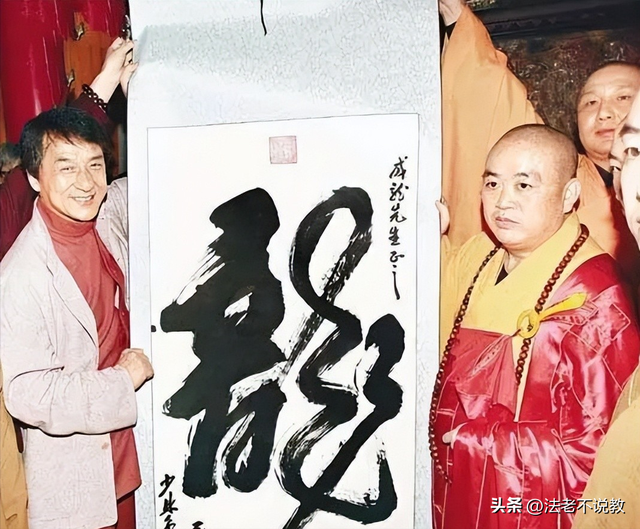 成龙先生正之
龍
少林
头条 @法老不说教